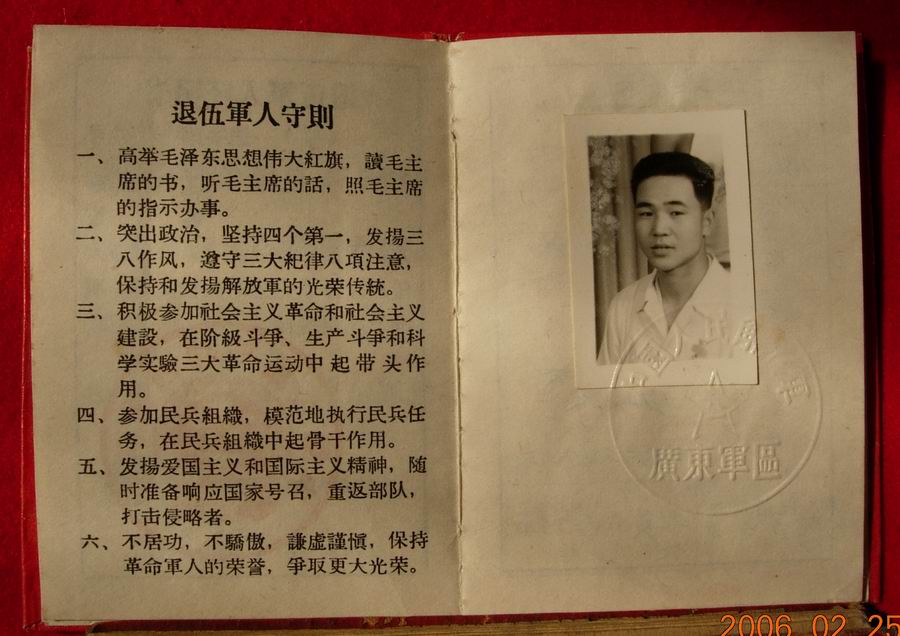 退伍軍人守則
一、高举毛泽东思想伟大紅旗，讀毛主
席的书，听毛主席的話，照毛主席
的指示办事。
二、突出政治，坚持四个第一，发揚三
八作风，遵守三大紀律八項注意，
保持和发揚解放軍的光荣传統。
三、积极参加社会主义革命和社会主义
建設，在阶級斗爭、生产斗爭和科
学实驗三大革命运动中起带头作
用。
四、参加民兵組織，模范地执行民兵任
务，在民兵組織中起骨干作用。
五、发揚爱国主义和国际主义精神，随
时准备响应国家号召，重返部队，
打击侵略者。
六、不居功，不驕傲，謙虛謹愼，保持
革命軍人的荣誉，爭取更大光荣。
廣東軍區
2006 02 25